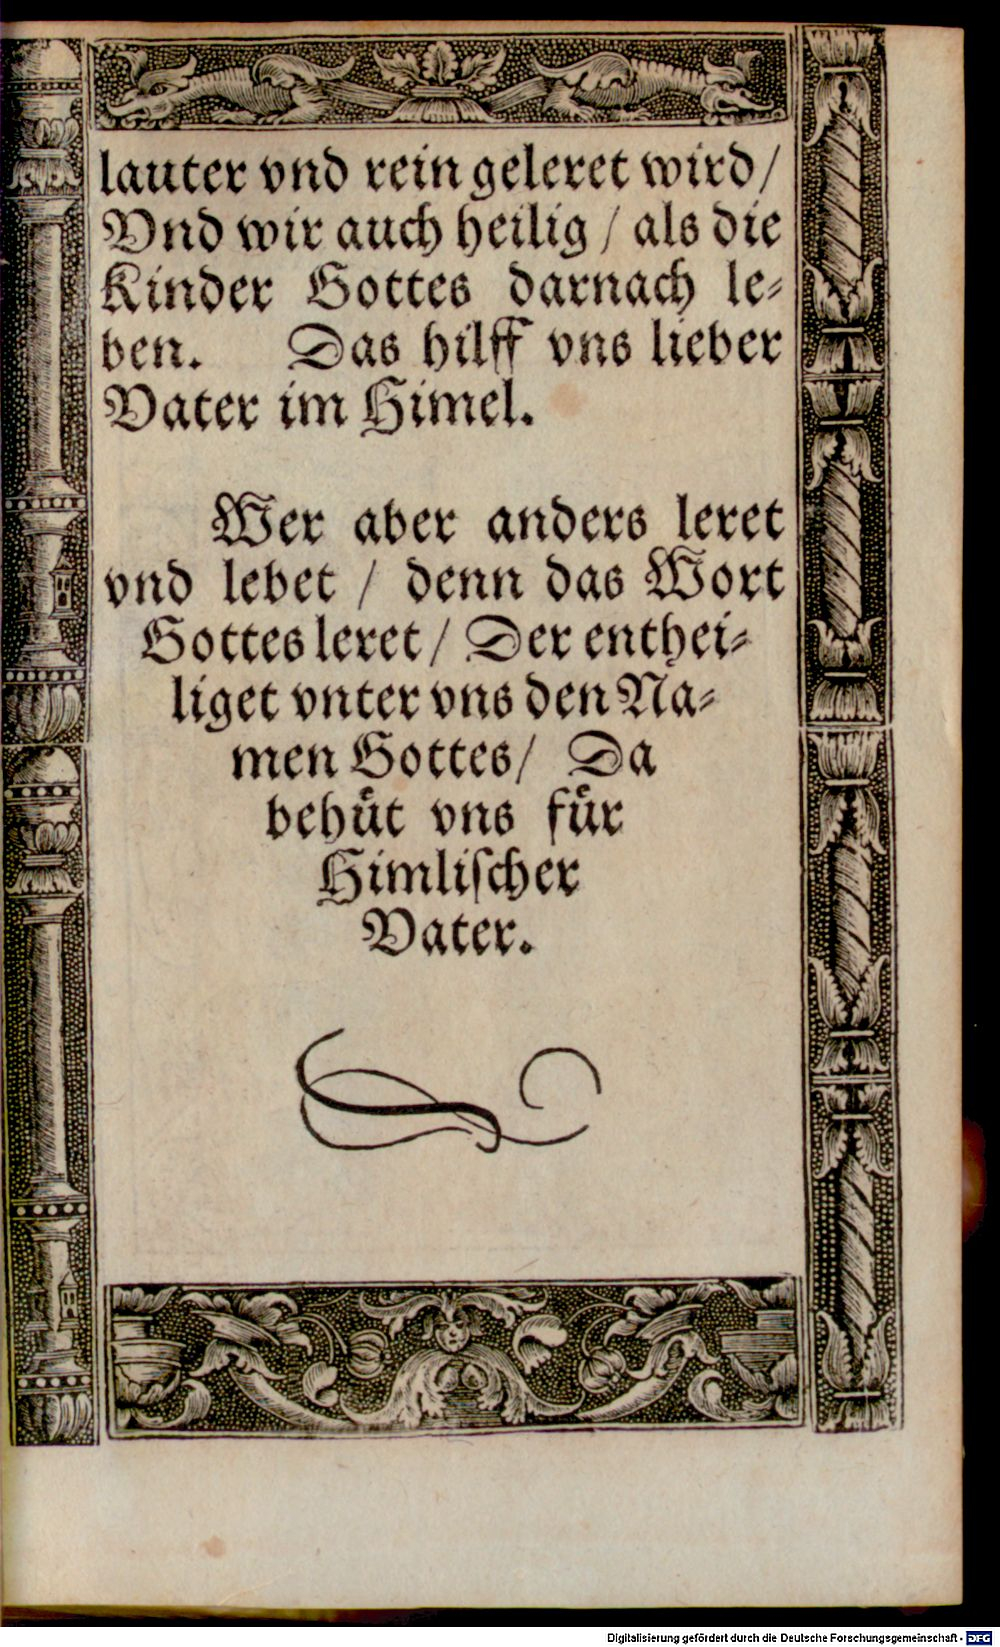 lauter vnd rein geleret wird/
Vnd wir auch heilig / als die
Kinder Gottes darnach le-
ben. Das hilff vns lieber
Vater im Himel.
Wer aber anders leret
vnd lebet / denn das Wort
Gottes leret/ Der enthei-
liget vnter vns den Na-
men Gottes/ Da
behuͤt vns fuͤr
Himliſcher
Vater.
Digitalisierung gefördert durch die Deutsche Forschungsgemeinschaft - DFG